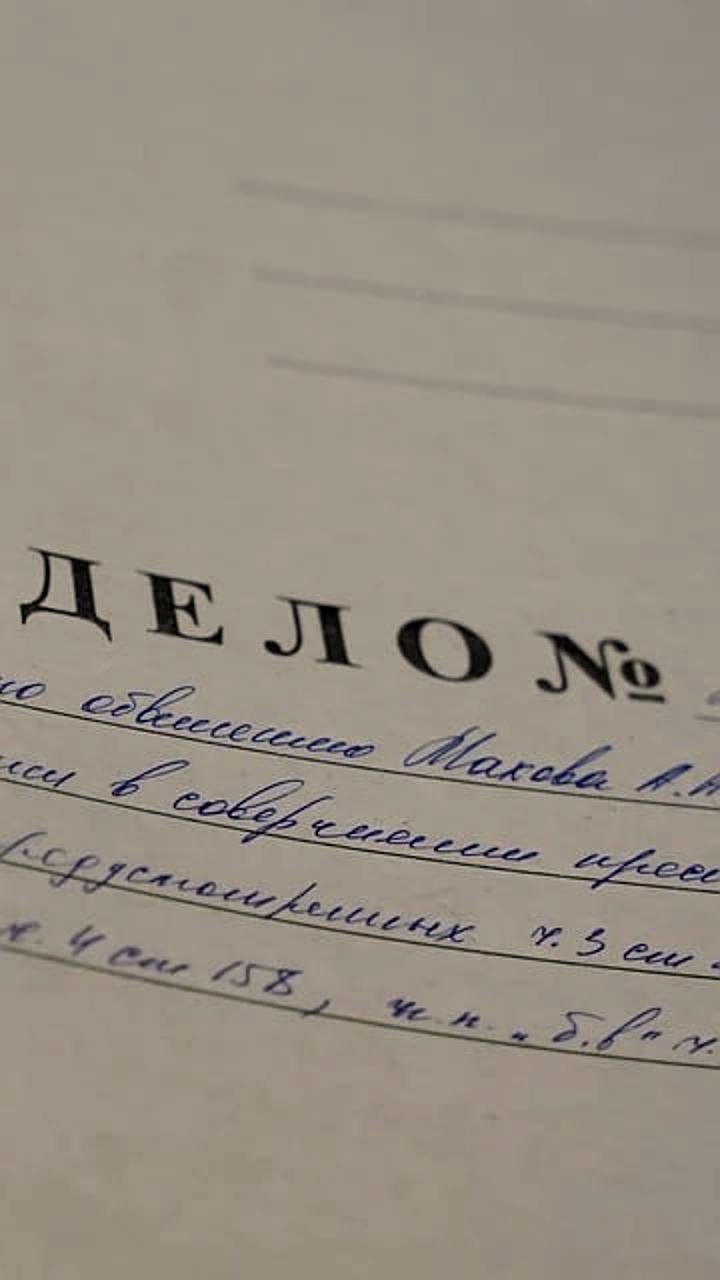 ДЕЛО №
по обвинению Макова А.А
в совершении прес
предусмотренных ч. 3 ст
ч. 4 ст 158, п.п. „б.в" ч.